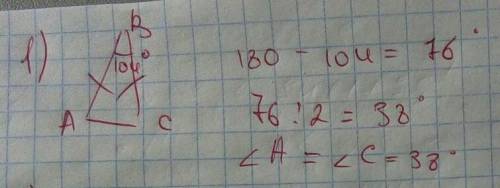 1)
B
104°
A
C
180 - 104 = 76°
76 : 2 = 38°
∠A = ∠C = 38°